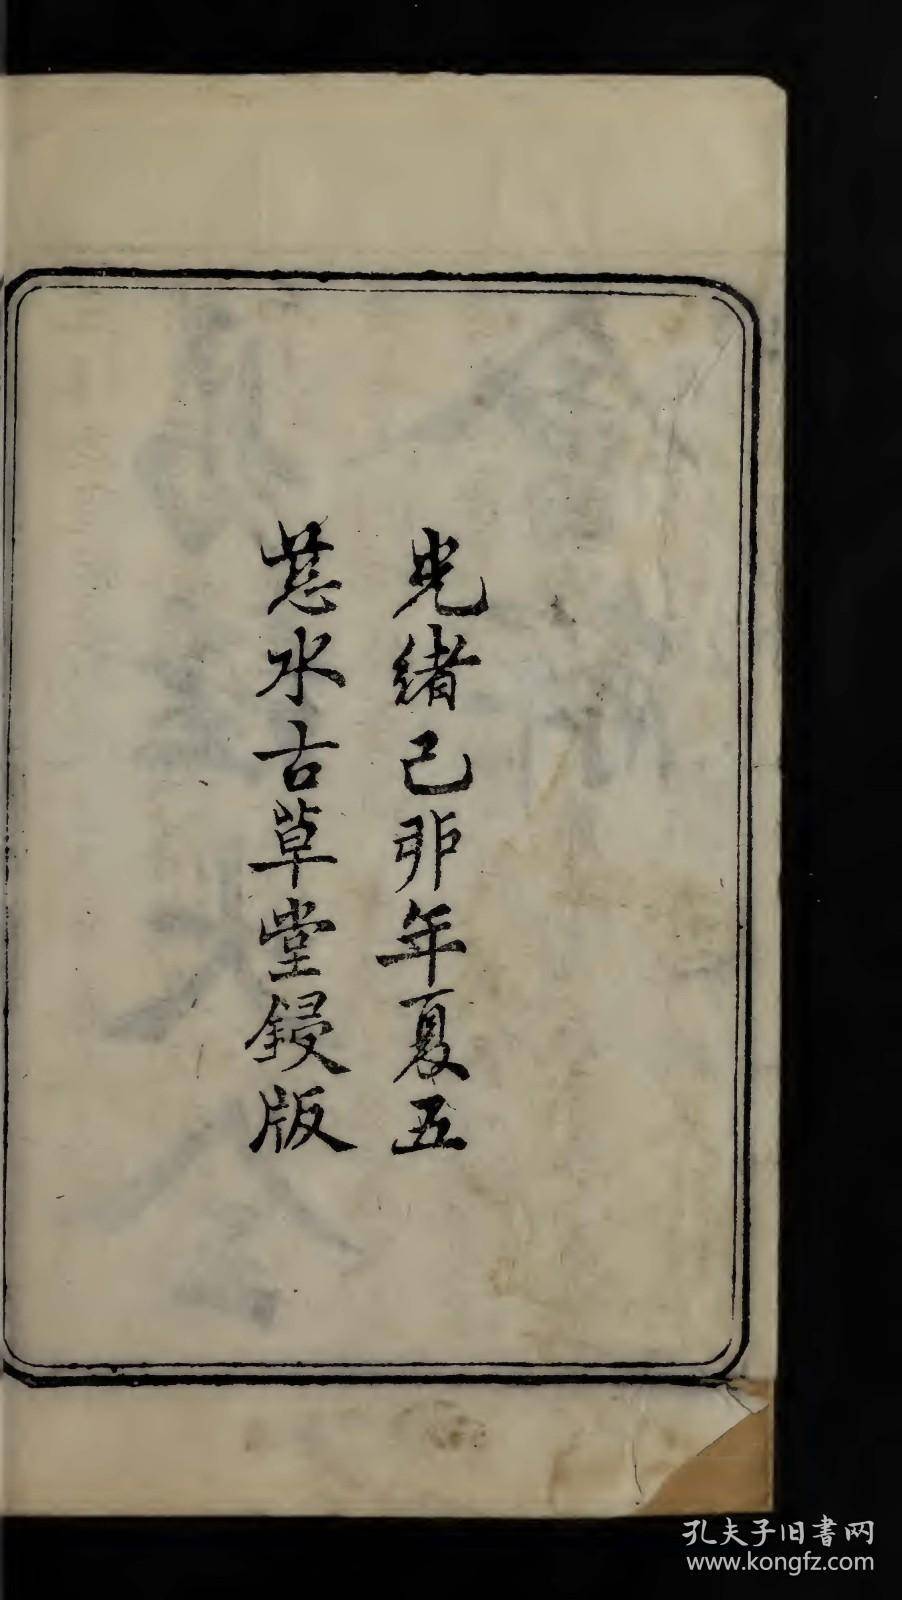 光緒己卯年夏五
慈水古草堂鋟版
孔夫子旧書网
www.kongfz.com